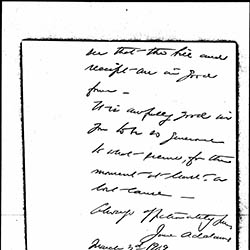 see that the bill and
receipt are in good
form —
It is awfully good in
you to be so generous
to what seems for the
moment at least a
lost cause —
Always affectionately yrs
Jane Addams
March 3rd 1919